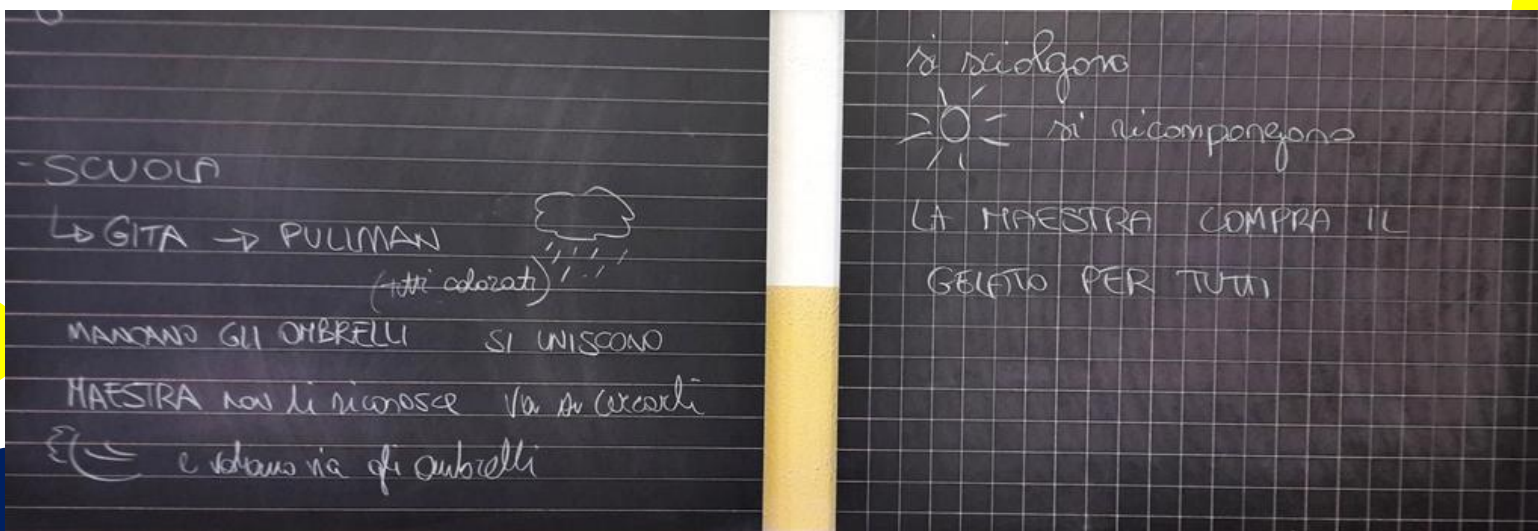 - SCUOLA
↳ GITA → PULLMAN
(tutti colorati)
MANCANO GLI OMBRELLI SI UNISCONO
MAESTRA non li riconosce va a cercarli
e volano via gli ombrelli
si sciolgono
si ricompongono
LA MAESTRA COMPRA IL
GELATO PER TUTTI